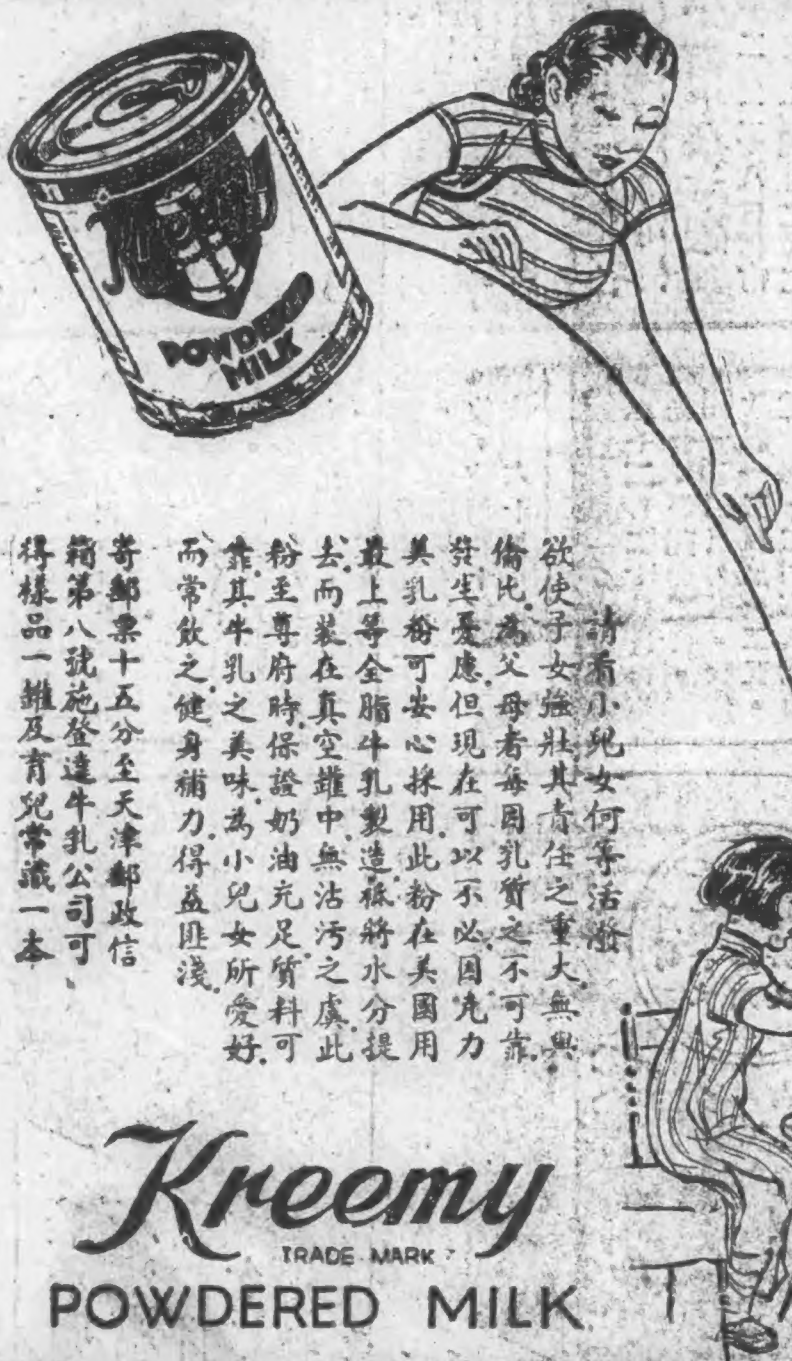 Kreemy
POWDERED
MILK
請看小兒女何等活潑
欲使子女強壯其責任之重大.無與
倫比.為父母者每因乳質之不可靠.
發生憂慮.但現在可以不必.因克力
美乳粉可安心採用.此粉在美國用
最上等全脂牛乳製造.祗將水分提
去.而裝在真空罐中.無沾污之虞.此
粉至尊府時.保證奶油充足.質料可
靠.其牛乳之美味.為小兒女所愛好.
而常飲之.健身補力.得益匪淺.
寄郵票十五分至天津郵政信
箱第八號施登達牛乳公司可
得樣品一罐及育兒常識一本
Kreemy
TRADE MARK
POWDERED MILK